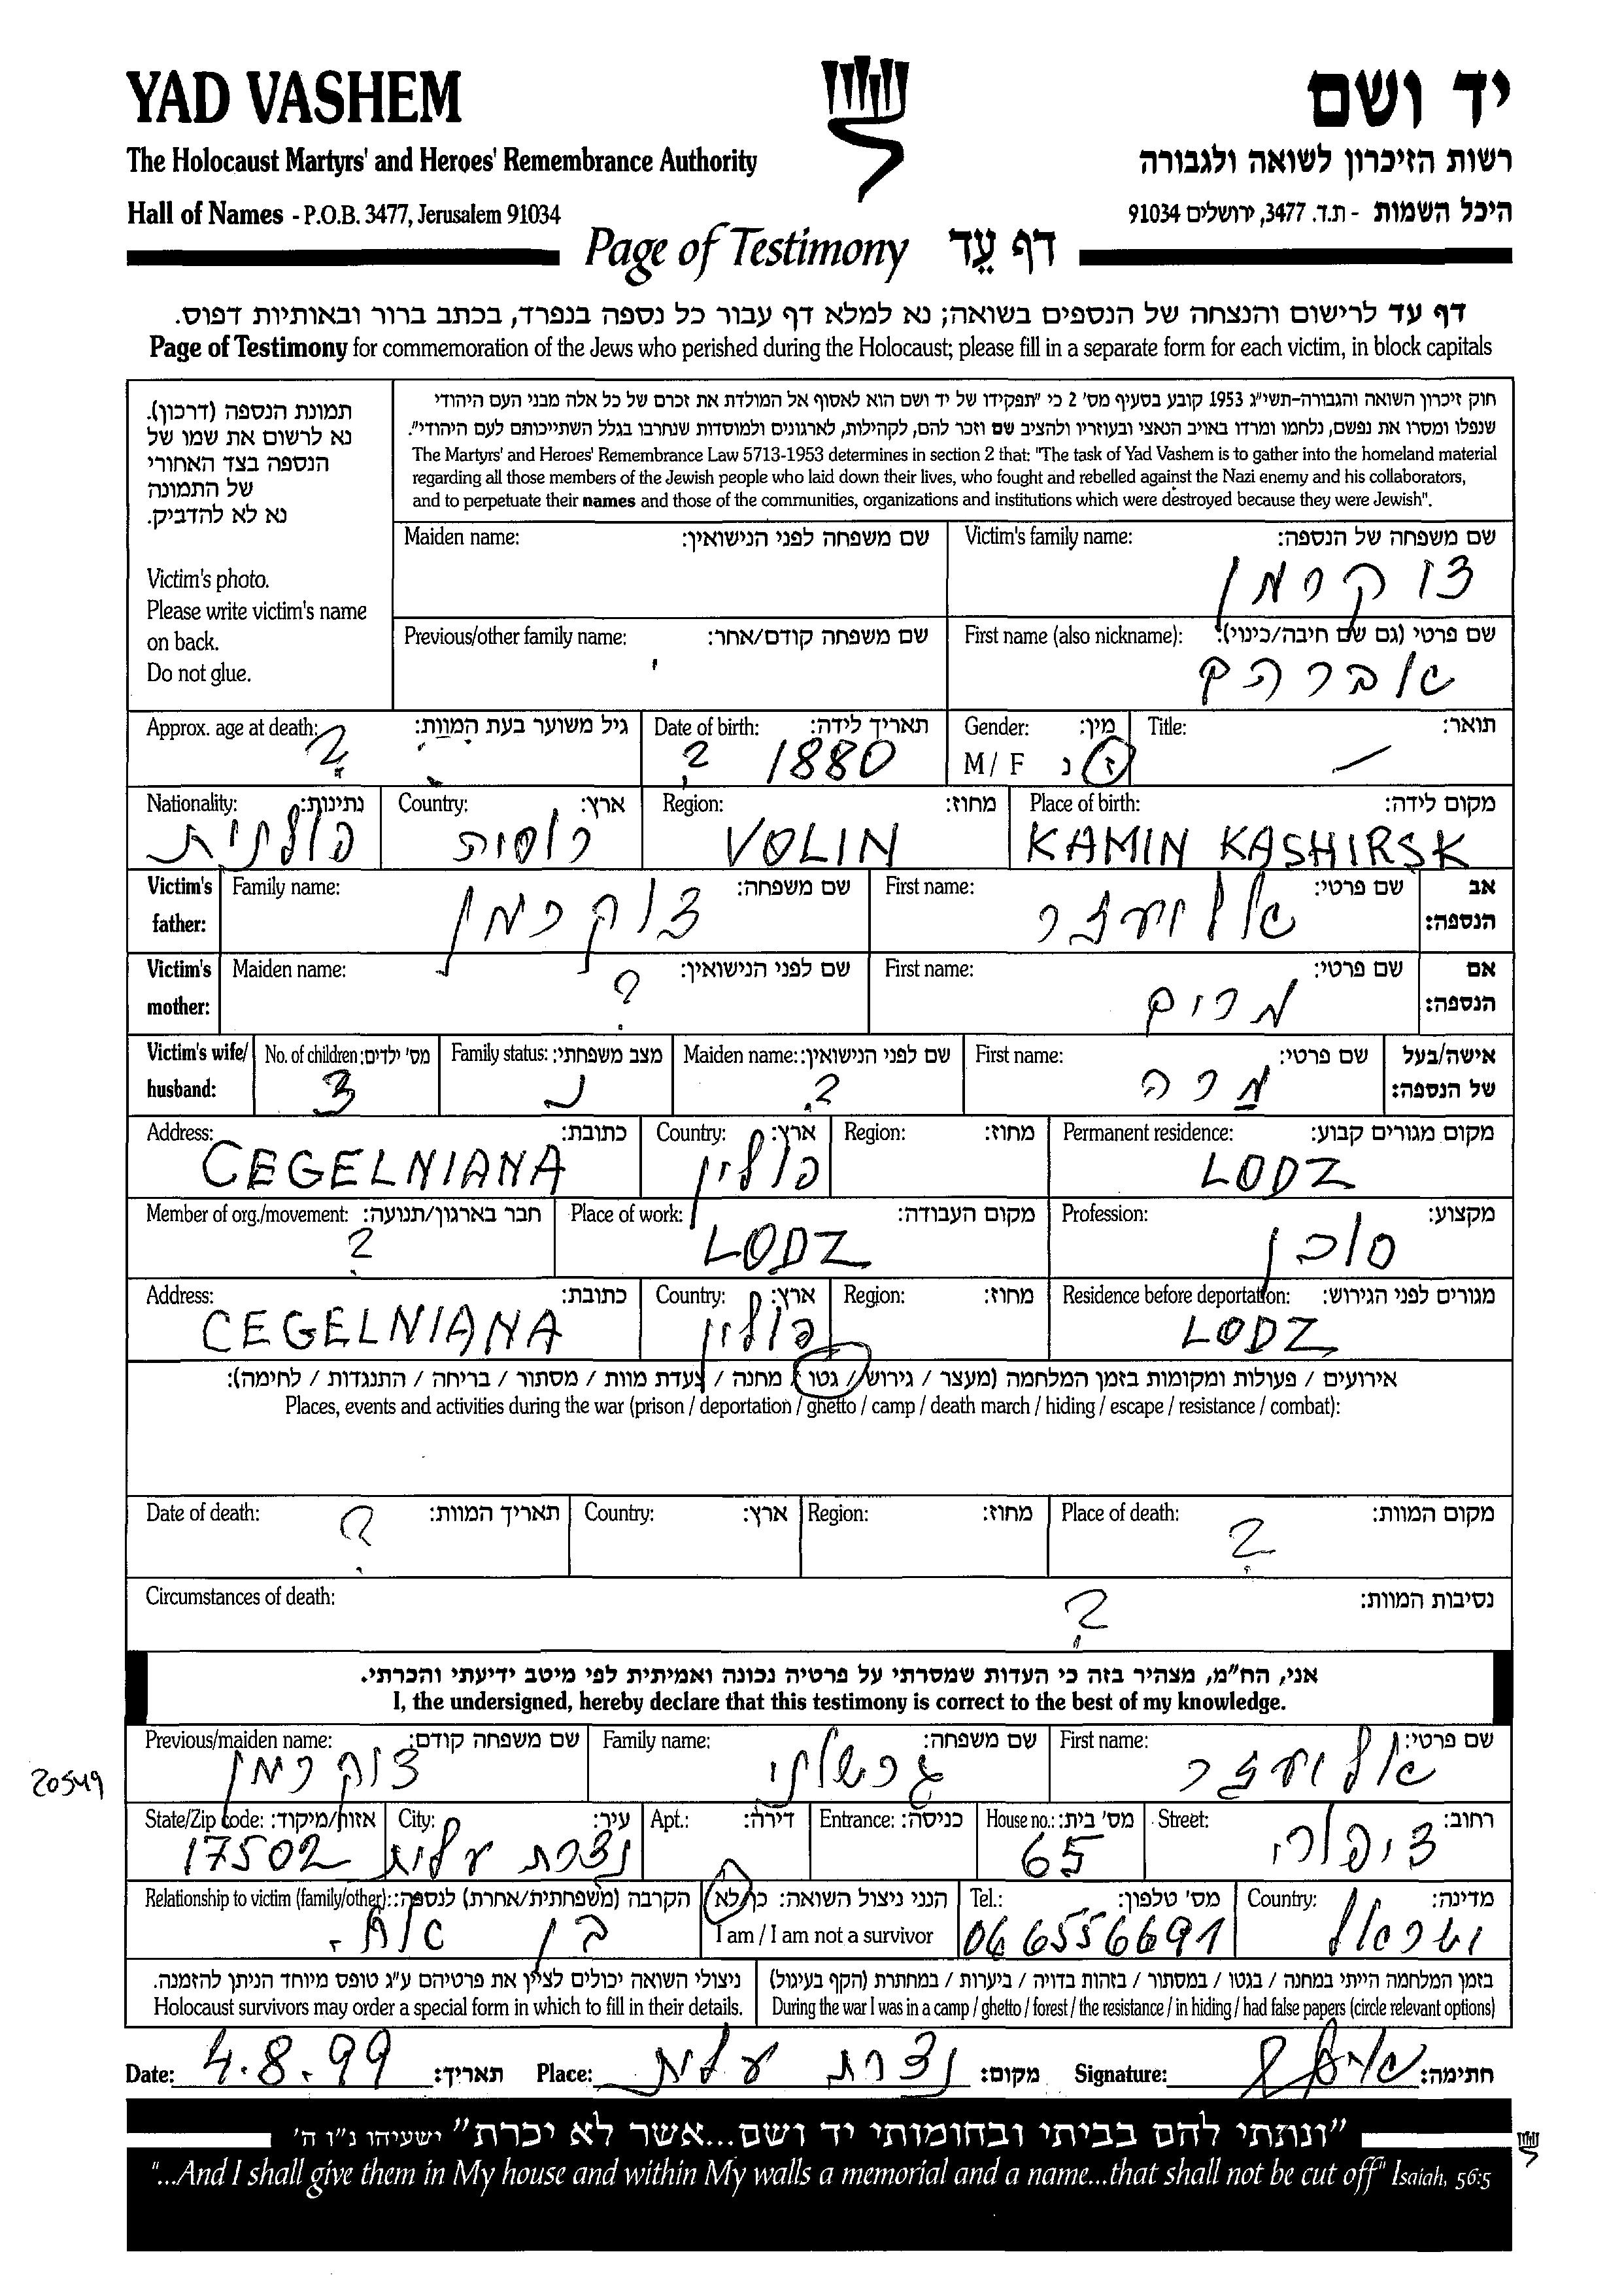 YAD VASHEM
יד ושם
The Holocaust Martyrs' and Heroes' Remembrance Authority
רשות הזיכרון לשואה ולגבורה
Hall of Names - P.O.B. 3477, Jerusalem 91034
היכל השמות - ת.ד. 3477, ירושלים 91034
Page of Testimony דף עֵד
דף עד לרישום והנצחה של הנספים בשואה; נא למלא דף עבור כל נספה בנפרד, בכתב ברור ובאותיות דפוס.
Page of Testimony for commemoration of the Jews who perished during the Holocaust; please fill in a separate form for each victim, in block capitals
תמונת הנספה (דרכון).
נא לרשום את שמו של
הנספה בצד האחורי
של התמונה
נא לא להדביק.
Victim's photo.
Please write victim's name
on back.
Do not glue.
חוק זיכרון השואה והגבורה-תשי"ג 1953 קובע בסעיף מס' 2 כי "תפקידו של יד ושם הוא לאסוף אל המולדת את זכרם של כל אלה מבני העם היהודי
שנפלו ומסרו את נפשם, נלחמו ומרדו באויב הנאצי ובעוזריו ולהציב שם וזכר להם, לקהילות, לארגונים ולמוסדות שנחרבו בגלל השתייכותם לעם היהודי".
The Martyrs' and Heroes' Remembrance Law 5713-1953 determines in section 2 that: "The task of Yad Vashem is to gather into the homeland material
regarding all those members of the Jewish people who laid down their lives, who fought and rebelled against the Nazi enemy and his collaborators,
and to perpetuate their names and those of the communities, organizations and institutions which were destroyed because they were Jewish".
Maiden name: שם משפחה לפני הנישואין:
Victim's family name: שם משפחה של הנספה:
צוקרמן
Previous/other family name: שם משפחה קודם/אחר:
First name (also nickname): שם פרטי (גם שם חיבה/כינוי):
אברהם
Approx. age at death: גיל משוער בעת המוות:
?
Date of birth: תאריך לידה:
? 1880
Gender: מין:
M / F ז נ
Title: תואר:
Nationality: נתינות:
פולנית
Country: ארץ:
רוסיה
Region: מחוז:
VOLIN
Place of birth: מקום לידה:
KAMIN KASHIRSK
Victim's father:
Family name: שם משפחה:
צוקרמן
First name: שם פרטי:
אליעזר
אב הנספה:
Victim's mother:
Maiden name: שם לפני הנישואין:
?
First name: שם פרטי:
מרים
אם הנספה:
Victim's wife/ husband:
No. of children: מס' ילדים:
3
Family status: מצב משפחתי:
נ
Maiden name: שם לפני הנישואין:
?
First name: שם פרטי:
מרה
אישה/בעל של הנספה:
Address: כתובת:
CEGELNIANA
Country: ארץ:
פולין
Region: מחוז:
Permanent residence: מקום מגורים קבוע:
LODZ
Member of org./movement: חבר בארגון/תנועה:
?
Place of work: מקום העבודה:
LODZ
Profession: מקצוע:
סוכן
Address: כתובת:
CEGELNIANA
Country: ארץ:
פולין
Region: מחוז:
Residence before deportation: מגורים לפני הגירוש:
LODZ
אירועים / פעולות ומקומות בזמן המלחמה (מעצר / גירוש / גטו / מחנה / צעדת מוות / מסתור / בריחה / התנגדות / לחימה):
Places, events and activities during the war (prison / deportation / ghetto / camp / death march / hiding / escape / resistance / combat):
Date of death: תאריך המוות:
?
Country: ארץ:
Region: מחוז:
Place of death: מקום המוות:
?
Circumstances of death: נסיבות המוות:
?
אני, הח"מ, מצהיר בזה כי העדות שמסרתי על פרטיה נכונה ואמיתית לפי מיטב ידיעתי והכרתי.
I, the undersigned, hereby declare that this testimony is correct to the best of my knowledge.
20549
Previous/maiden name: שם משפחה קודם:
צוקרמן
Family name: שם משפחה:
גרשוני
First name: שם פרטי:
אליעזר
State/Zip code: אזור/מיקוד:
17502
City: עיר:
נצרת עלית
Apt.: דירה:
Entrance: כניסה:
House no.: מס' בית:
65
Street: רחוב:
ציפורי
Relationship to victim (family/other): הקרבה (משפחתית/אחרת) לנספה:
בן אח.
הנני ניצול השואה: כן/לא
I am / I am not a survivor
Tel.: מס' טלפון:
06 6556691
Country: מדינה:
ישראל
ניצולי השואה יכולים לציין את פרטיהם ע"ג טופס מיוחד הניתן להזמנה.
Holocaust survivors may order a special form in which to fill in their details.
בזמן המלחמה הייתי במחנה / בגטו / במסתור / בזהות בדויה / ביערות / במחתרת (הקף בעיגול)
During the war I was in a camp / ghetto / forest / the resistance / in hiding / had false papers (circle relevant options)
Date: 4.8.99 תאריך:
Place: נצרת עלית מקום:
Signature: חתימה:
"ונתתי להם בביתי ובחומותי יד ושם...אשר לא יכרת" ישעיהו נ"ו ה'
"...And I shall give them in My house and within My walls a memorial and a name...that shall not be cut off" Isaiah, 56:5